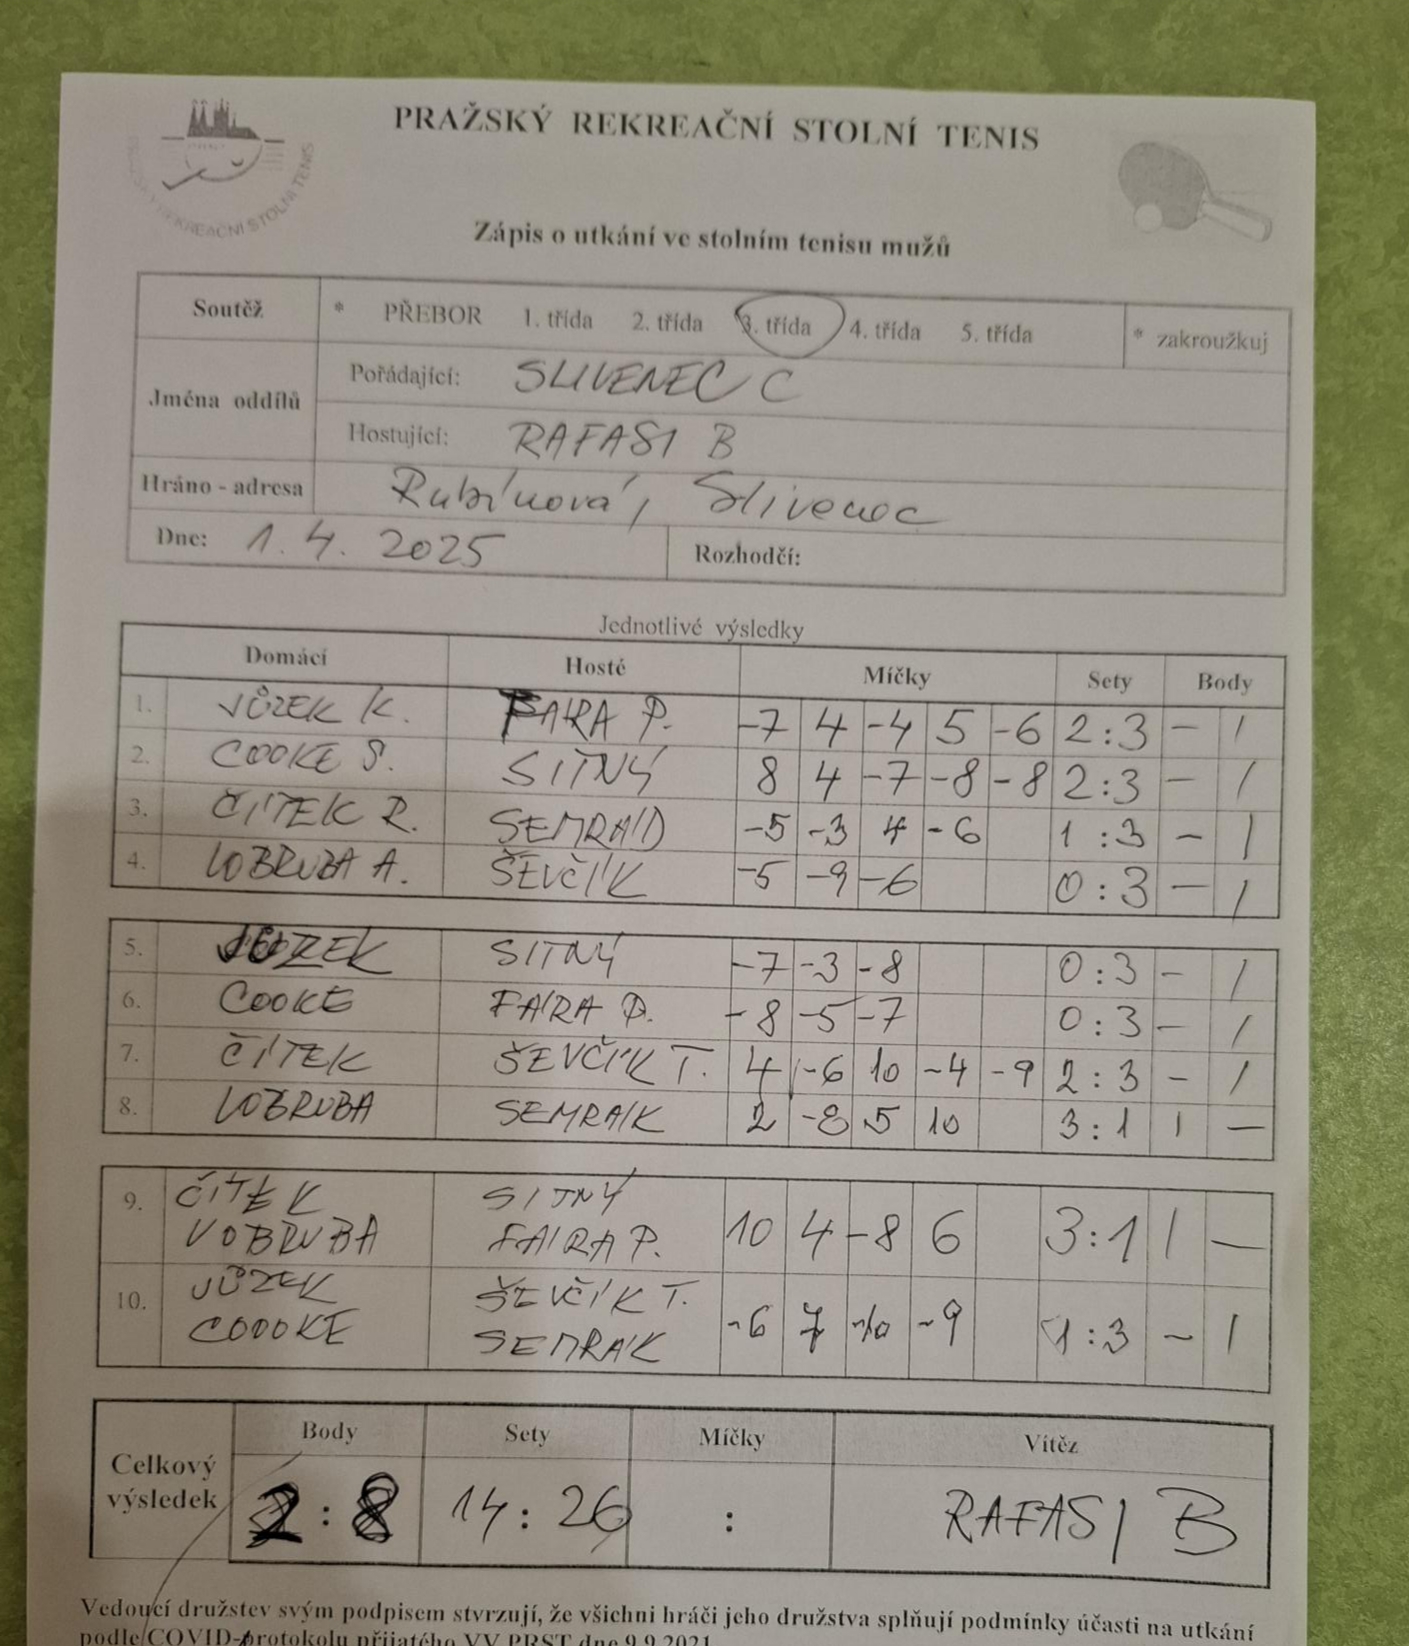 PRAŽSKÝ REKREAČNÍ STOLNÍ TENIS
REKREAČNÍ STOLNÍ TENIS
Zápis o utkání ve stolním tenisu mužů
Soutěž * PŘEBOR 1. třída 2. třída 3. třída 4. třída 5. třída * zakroužkuj
Jména oddílů
Pořádající: SLIVENEC C
Hostující: RAFASI B
Hráno - adresa Rubínová, Slivenec
Dne: 1. 4. 2025 Rozhodčí:
Jednotlivé výsledky
Domácí Hosté Míčky Sety Body
1. JŮZEK K. FAIRA P. -7 4 -4 5 -6 2:3 - 1
2. COOKE S. SITNÝ 8 4 -7 -8 -8 2:3 - 1
3. ČÍTEK R. -5 -3 4 -6 1:3 - 1
4. VOBRUBA A. ŠEVČÍK -5 -9 -6 0:3 - 1
5. JŮZEK SITNÝ -7 -3 -8 0:3 - 1
6. COOKE FAIRA P. -8 -5 -7 0:3 - 1
7. ČÍTEK ŠEVČÍK T. 4 -6 10 -4 -9 2:3 - 1
8. VOBRUBA SEMRÁK 2 -8 5 10 3:1 1 -
9. ČÍTEK SITNÝ
VOBRUBA FAIRA P. 10 4 -8 6 3:1 1 -
10. JŮZEK ŠEVČÍK T.
COOOKE SEMRÁK -6 7 -10 -9 1:3 - 1
Body Sety Míčky Vítěz
Celkový
výsledek 2:8 14:26 : RAFASI B
Vedoucí družstev svým podpisem stvrzují, že všichni hráči jeho družstva splňují podmínky účasti na utkání
podle COVID-protokolu přijatého VV PRST dne 9.9.2021